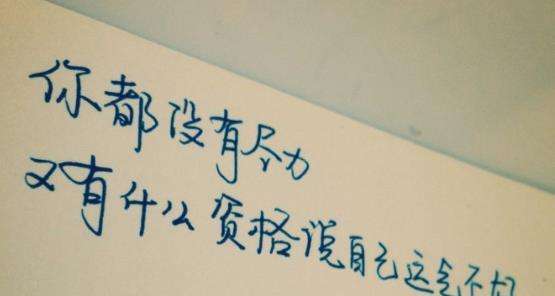 你都没有尽力
又有什么资格说自己运气不好